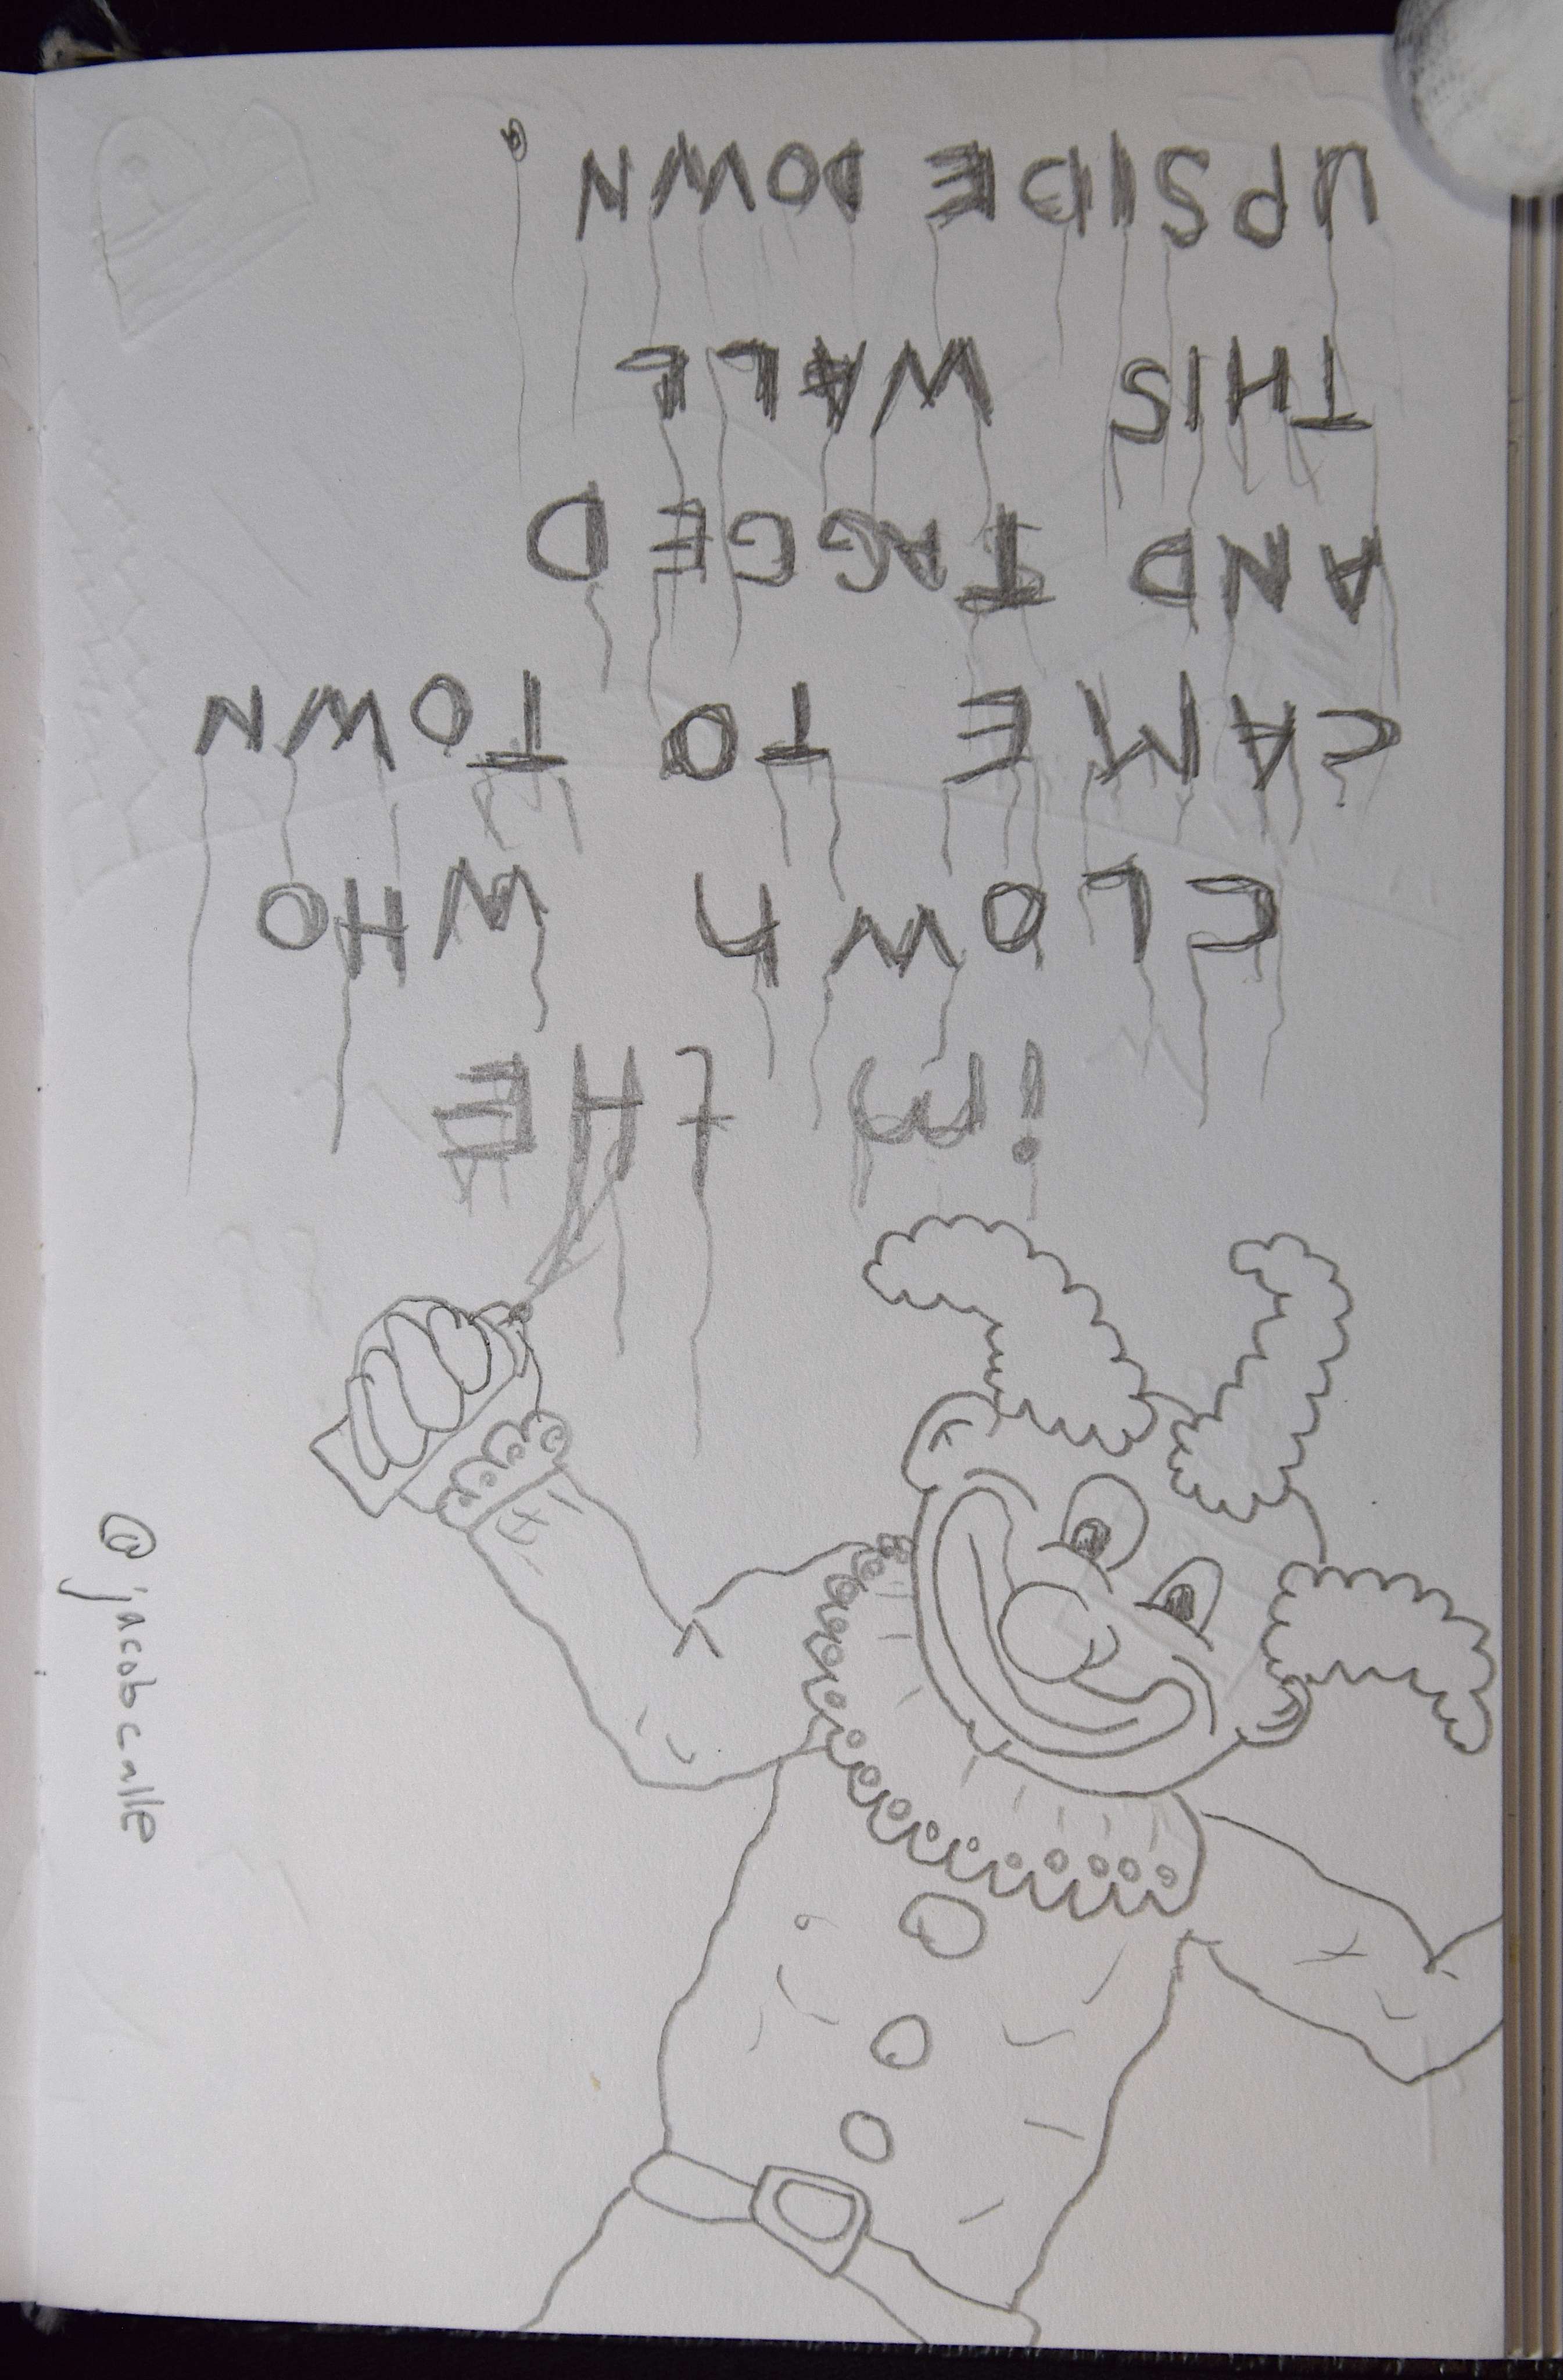 im tHE
CLOWn WHO
CAME TO TOWN
AND TAGGED
THIS WALL
UPSIDE DOWN.
@jacobcalle